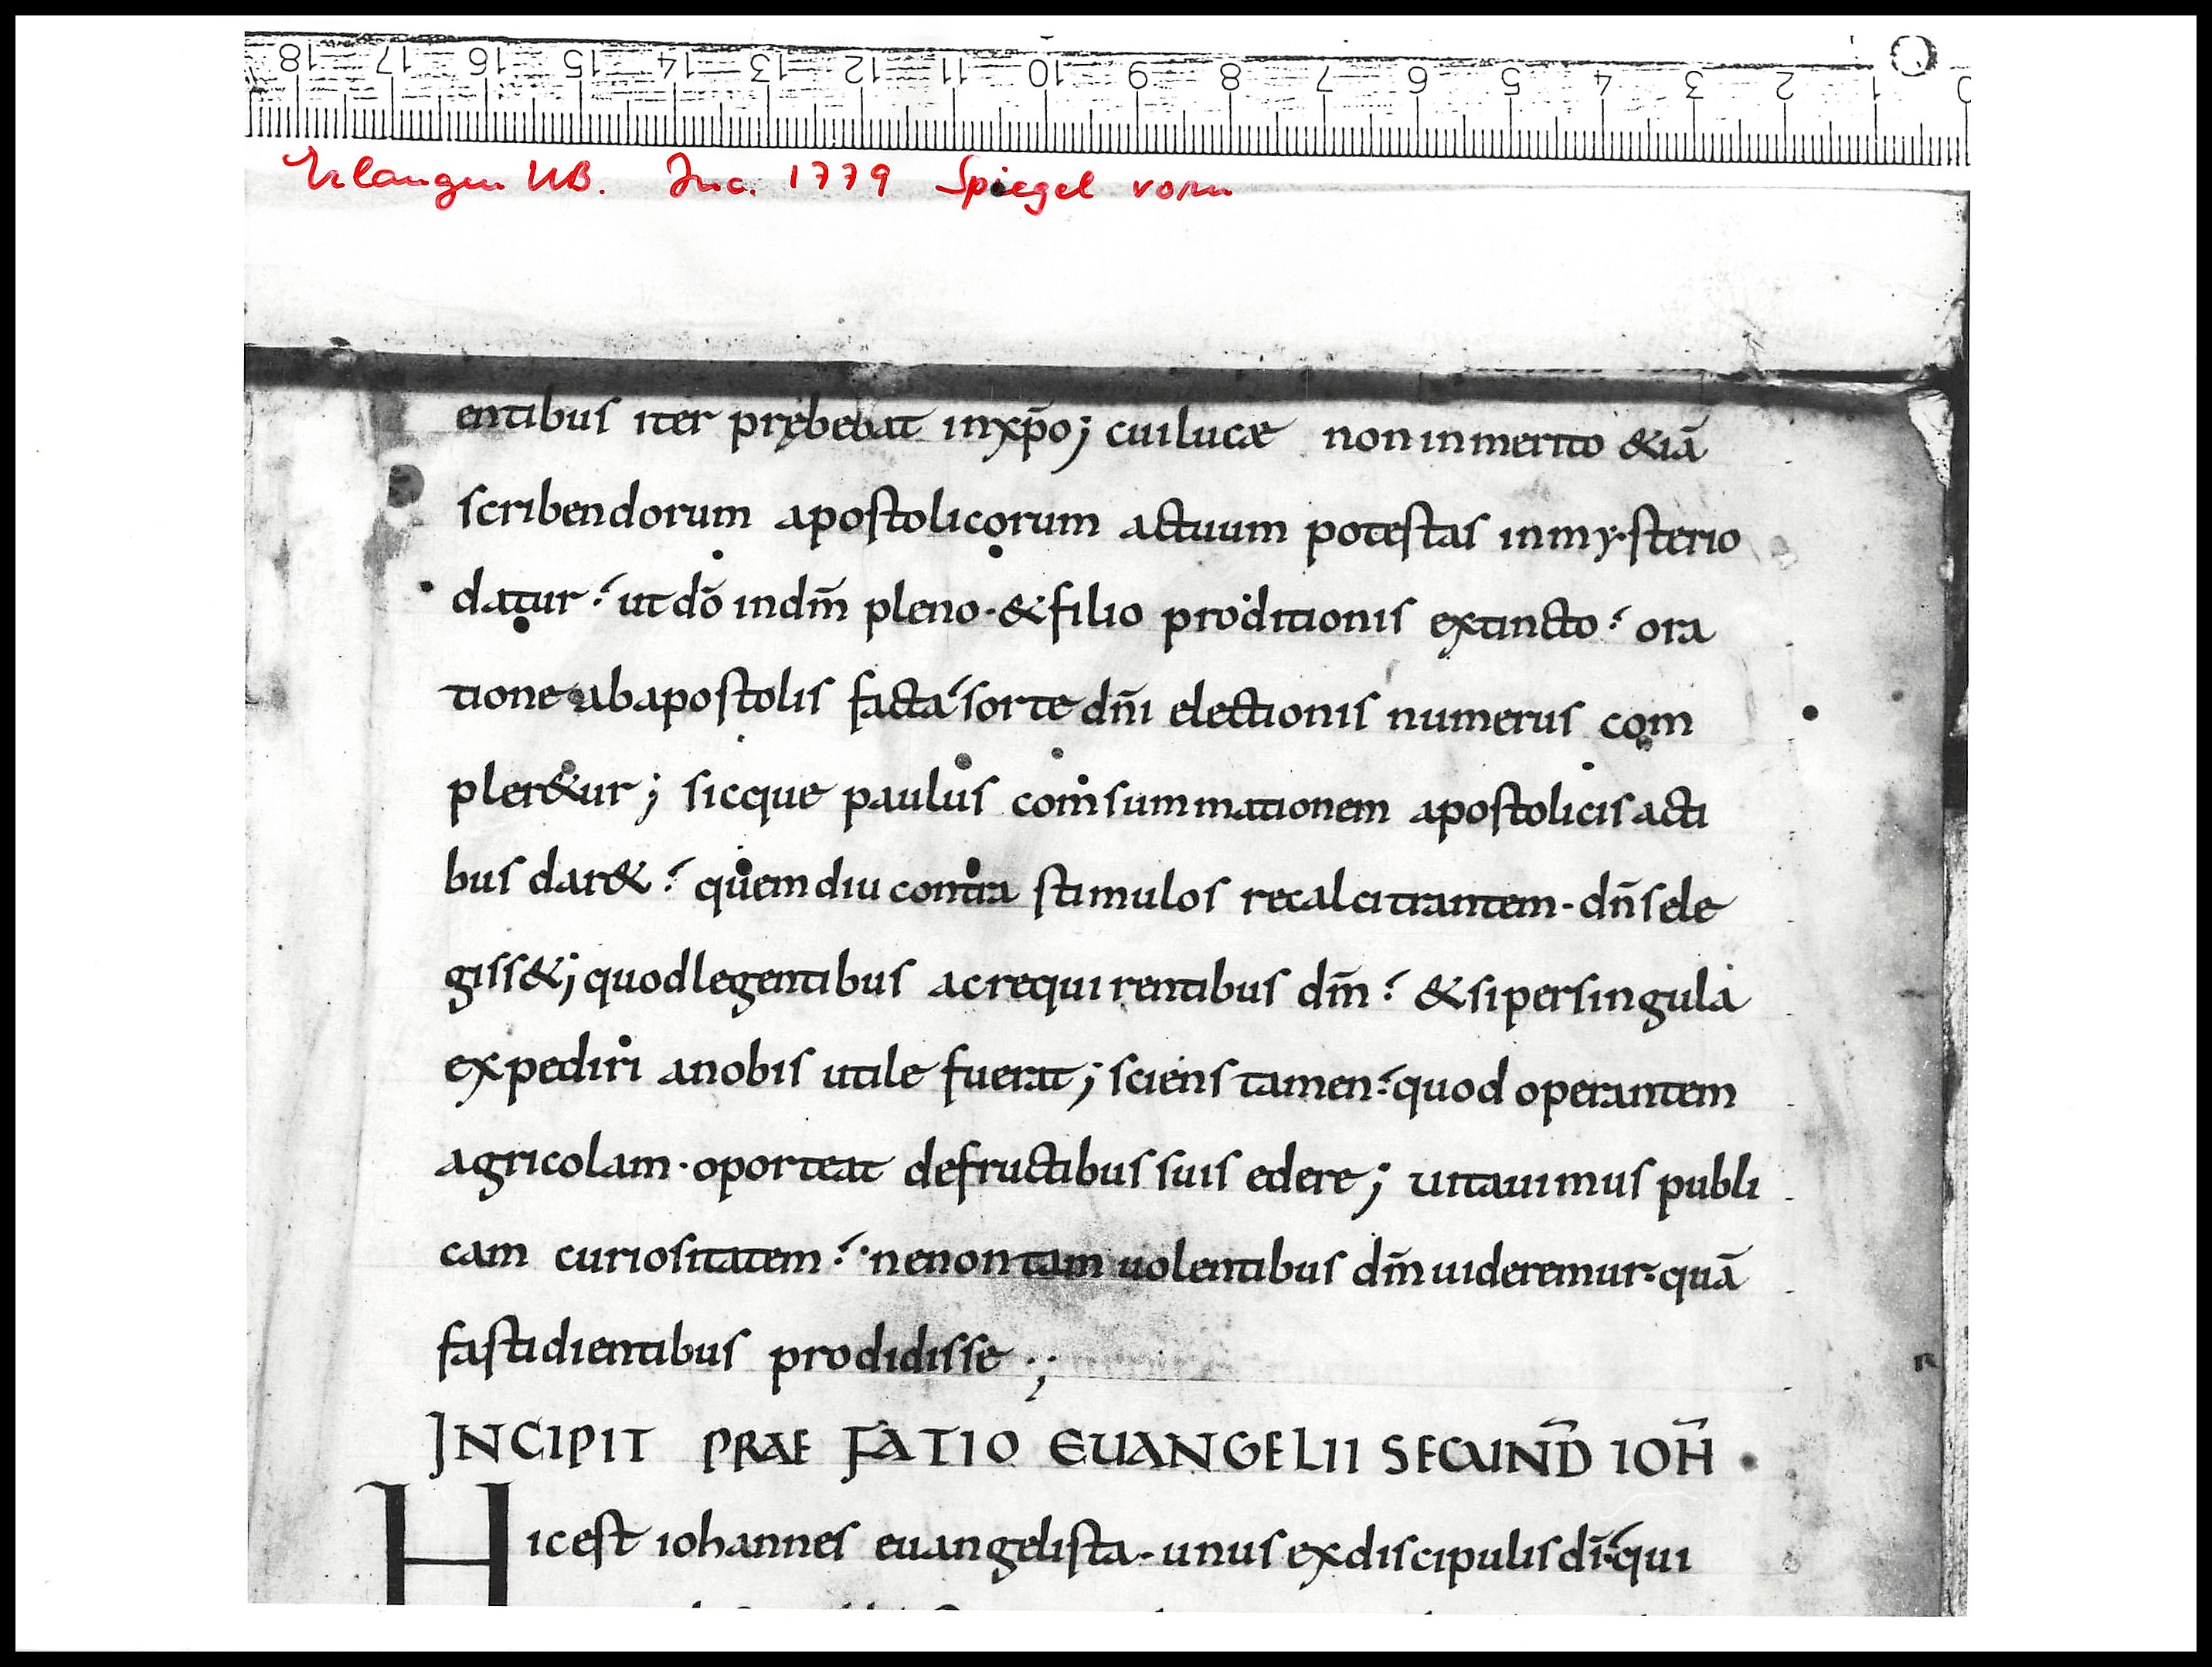 18 17 16 15 14 13 12 11 10 9 8 7 6 5 4 3 2 1 0
Erlangen UB. Inc. 1779 Spiegel vorn
entibus iter prębebat inxp̄o; cuilucæ noninmerito &iā
scribendorum apostolicorum actuum potestas inmysterio
datur: utdō indm̄ pleno·&filio proditionis extincto: ora
tione abapostolis facta sorte dn̄i electionis numerus com
pler&ur; sicque paulus comsummationem apostolicis acti
bus dar&: quem diu contra stimulos recalcitrantem·dn̄s ele
giss&; quodlegentibus acrequirentibus dm̄: &sipersingula
expediri anobis utile fuerat; sciens tamen: quod operantem
agricolam·oporteat defructibus suis edere; uitauimus publi
cam curiositatem: nenon tam uolentibus dm̄ uideremur: quā
fastidientibus prodidisse;
INCIPIT PRAEFATIO EUANGELII SECUND̄ IOH̄
Hicest iohannes euangelista·unus exdiscipulis dī·qui